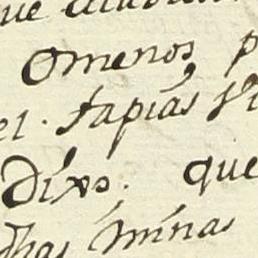 que
Omenos p
el. tapias
Dixo. que
dhas minas